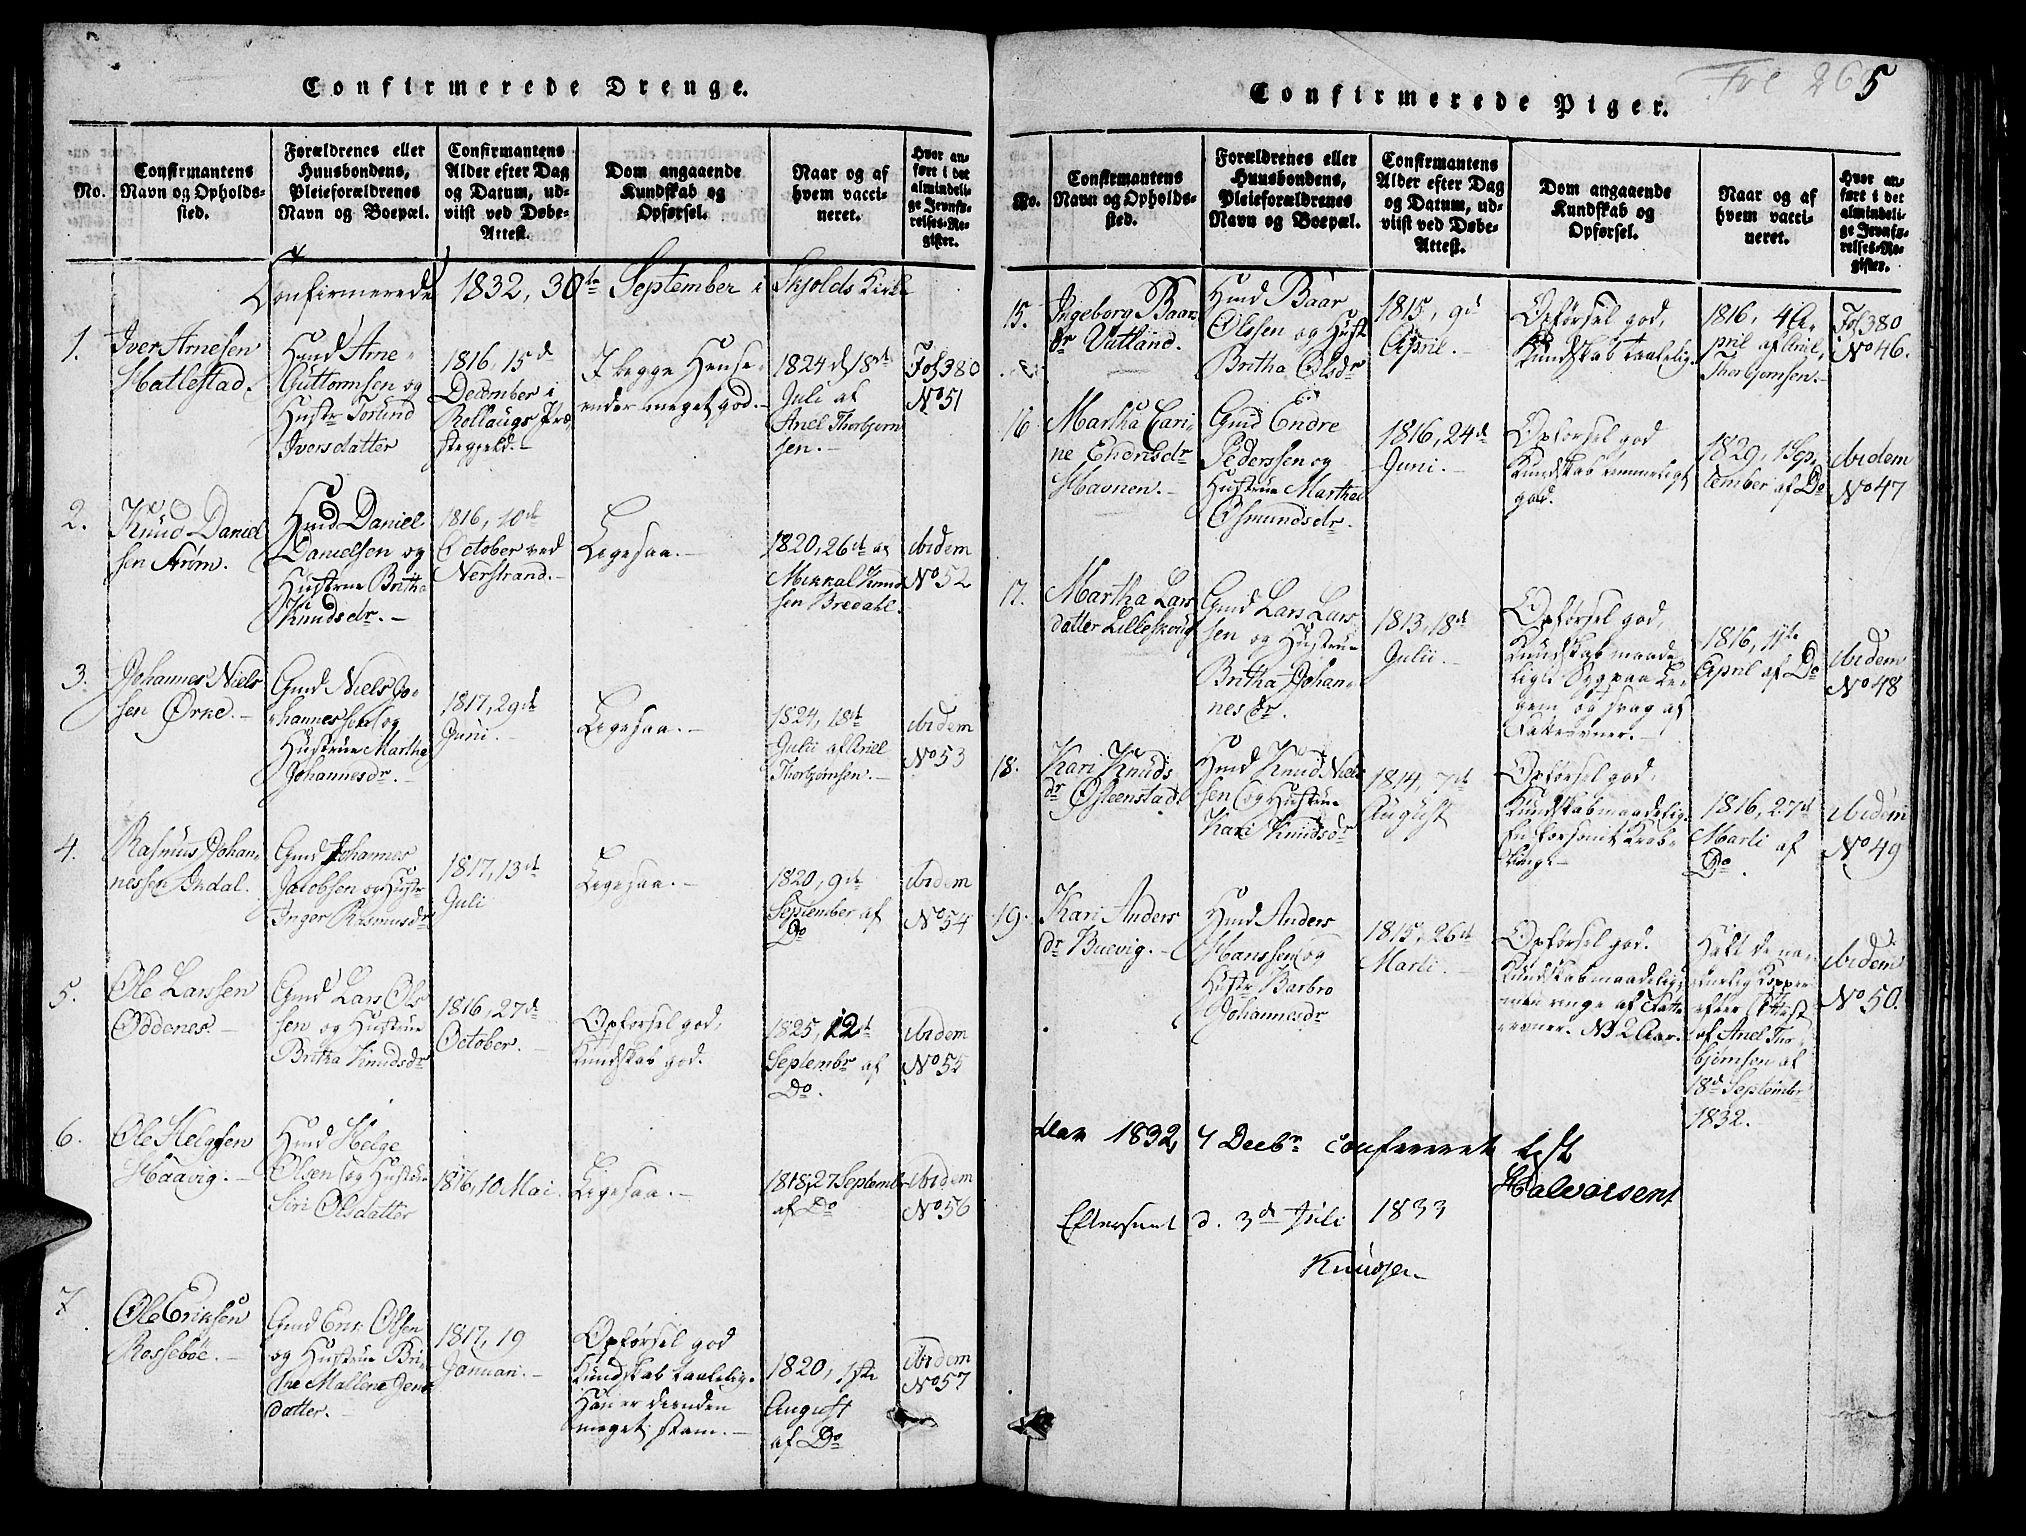 Confirmerede Drenge.
No.
Confirmantens
Navn og Opholds-
sted.
Forældrenes eller
Huusbondens,
Pleieforældrenes
Navn og Boepæl.
Confirmantens
Alder efter Dag
og Datum, ud-
viist ved Døbe-
Attest.
Dom angaaende
Kundskab og
Opførsel.
Naar og af
hvem vacci-
neret.
Hvor an-
ført i det
almindeli-
ge Jevnfø-
relses-Re-
gister.
Confirmerede 1832, 30te September i Skjolds Kirke
1.
Iver Arnesen
Hatlestad.
Huusmd Arne
Guttormsen og
Hustr Torund
Iversdatter
1816, 15d
December i
Præ-
stegjeld.
I begge Hense-
ender meget god.
1824 d 18de
Juli af
Ariel Thorbjørn
sen.
Fol 380
No 51
2.
Knud Daniel
sen Strøm.
Hmd Daniel
Danielsen og
Hustrue Britha
Knudsdr.
1816, 10de
October ved
Nerstrand.
Ligesaa.
1820, 26de af
Mikkal Knud
sen Bredahl.
Ibidem
No 52
3.
Johannes Niels
sen Ørke.
Gmd Niels Jo-
hannessen og
Hustrue Martha
Johannesdr.
1817, 29de
Juni.
Ligesaa.
1824, 18de
Julii af Ariel
Thorbjørnsen.
Ibidem
No 53
4.
Rasmus Johan-
nessen Indal.
Gmd Johannes
Jacobsen og Hustr
Inger Rasmusdr
1817, 13de
Juli
Ligesaa.
1820, 9de
September af
Do
Ibidem
No 54
5.
Ole Larssen
Oddenes.
Gmd Lars Ols
sen og Hustrue
Britha Knudsdr
1816, 27de
October.
Opførsel god,
Kundskab god.
1825, 12te
Septembr af
Do.
Ibidem
No 55
6.
Ole Helgesen
Haavig.
Hmd Helge
Olsen og Hustrue
Siri Olsdatter
1816, 10 Mai.
Ligesaa.
1818, 27 Septembr
af Do
Ibidem
No 56
7
Ole Eriksen
Rossebøe.
Gmd Erik Olsen
og Hustrue Bri-
the Mallene Jens
datter.
1817, 19
Januari.
Opførsel god
Kundskab taalelig.
Han er desuden
meget stam.
1820, 1ste
August
af Do
Ibidem
No 57
Confirmerede Piger.
Fol 265
No.
Confirmantens
Navn og Opholds-
sted.
Forældrenes eller
Huusbondens,
Pleieforældrenes
Navn og Boepæl.
Confirmantens
Alder efter Dag
og Datum, ud-
viist ved Døbe-
Attest.
Dom angaaende
Kundskab og
Opførsel.
Naar og af
hvem vacci-
neret.
Hvor an-
ført i det
almindeli-
ge Jevnfø-
relses-Re-
gister.
15.
Ingeborg Baars
dr Vatland.
Hmd Baar
Olssen og Hust
Britha Olsdr
1815, 9d
April.
Opførsel god,
Kundskab taalelig.
1816, 4 A-
pril af Ariel
Thorbjørnsen.
Fol 380
No 46.
16
Martha Cari-
ne Endresdr
Havnen.
Gmd Endre
Pederssen og
Hustrue Martha
Osmundsdr.
1816, 24de
Juni.
Opførsel god
Kundskab temmelig
god.
1829, 1 Sep-
tember af Do
Ibidem
No 47
17.
Martha Lars
datter Lilleskoug
Gmd Lars Lars
sen og Hustrue
Britha Johan-
nesdr.
1813, 18de
Julii.
Opførsel god,
Kundskab maade-
lig. Syg paa Le-
gem og svag af
Fatteevner.
1816, 11te
April af Do
Ibidem
No 48
18.
Kari Knuds
dr Østeenstad.
Hmd Knud Niels
sen og Hustrue
Kari Knudsdr
1814, 7de
August
Opførsel god,
Kundskab maadelig.
1816, 27de
Marti af
Do.
Ibidem
No 49
19.
Kari Anders
dr Buevig.
Hmd Anders
Hanssen og
Hustr Barbro
Johannesdr
1815, 26de
Marti.
Opførsel god.
Kundskab maadelig,
men ringe af Fatte
evner. NB 2 Aar.
Havt de na-
turlig Kopper
efter Attest
af Ariel Thor-
bjørnsen af
18d September
1832.
Ibidem
No 50.
1832, 4 Decbr conferert
Halvorsen
Efterseet d. 3de Juli 1833
Knudsen